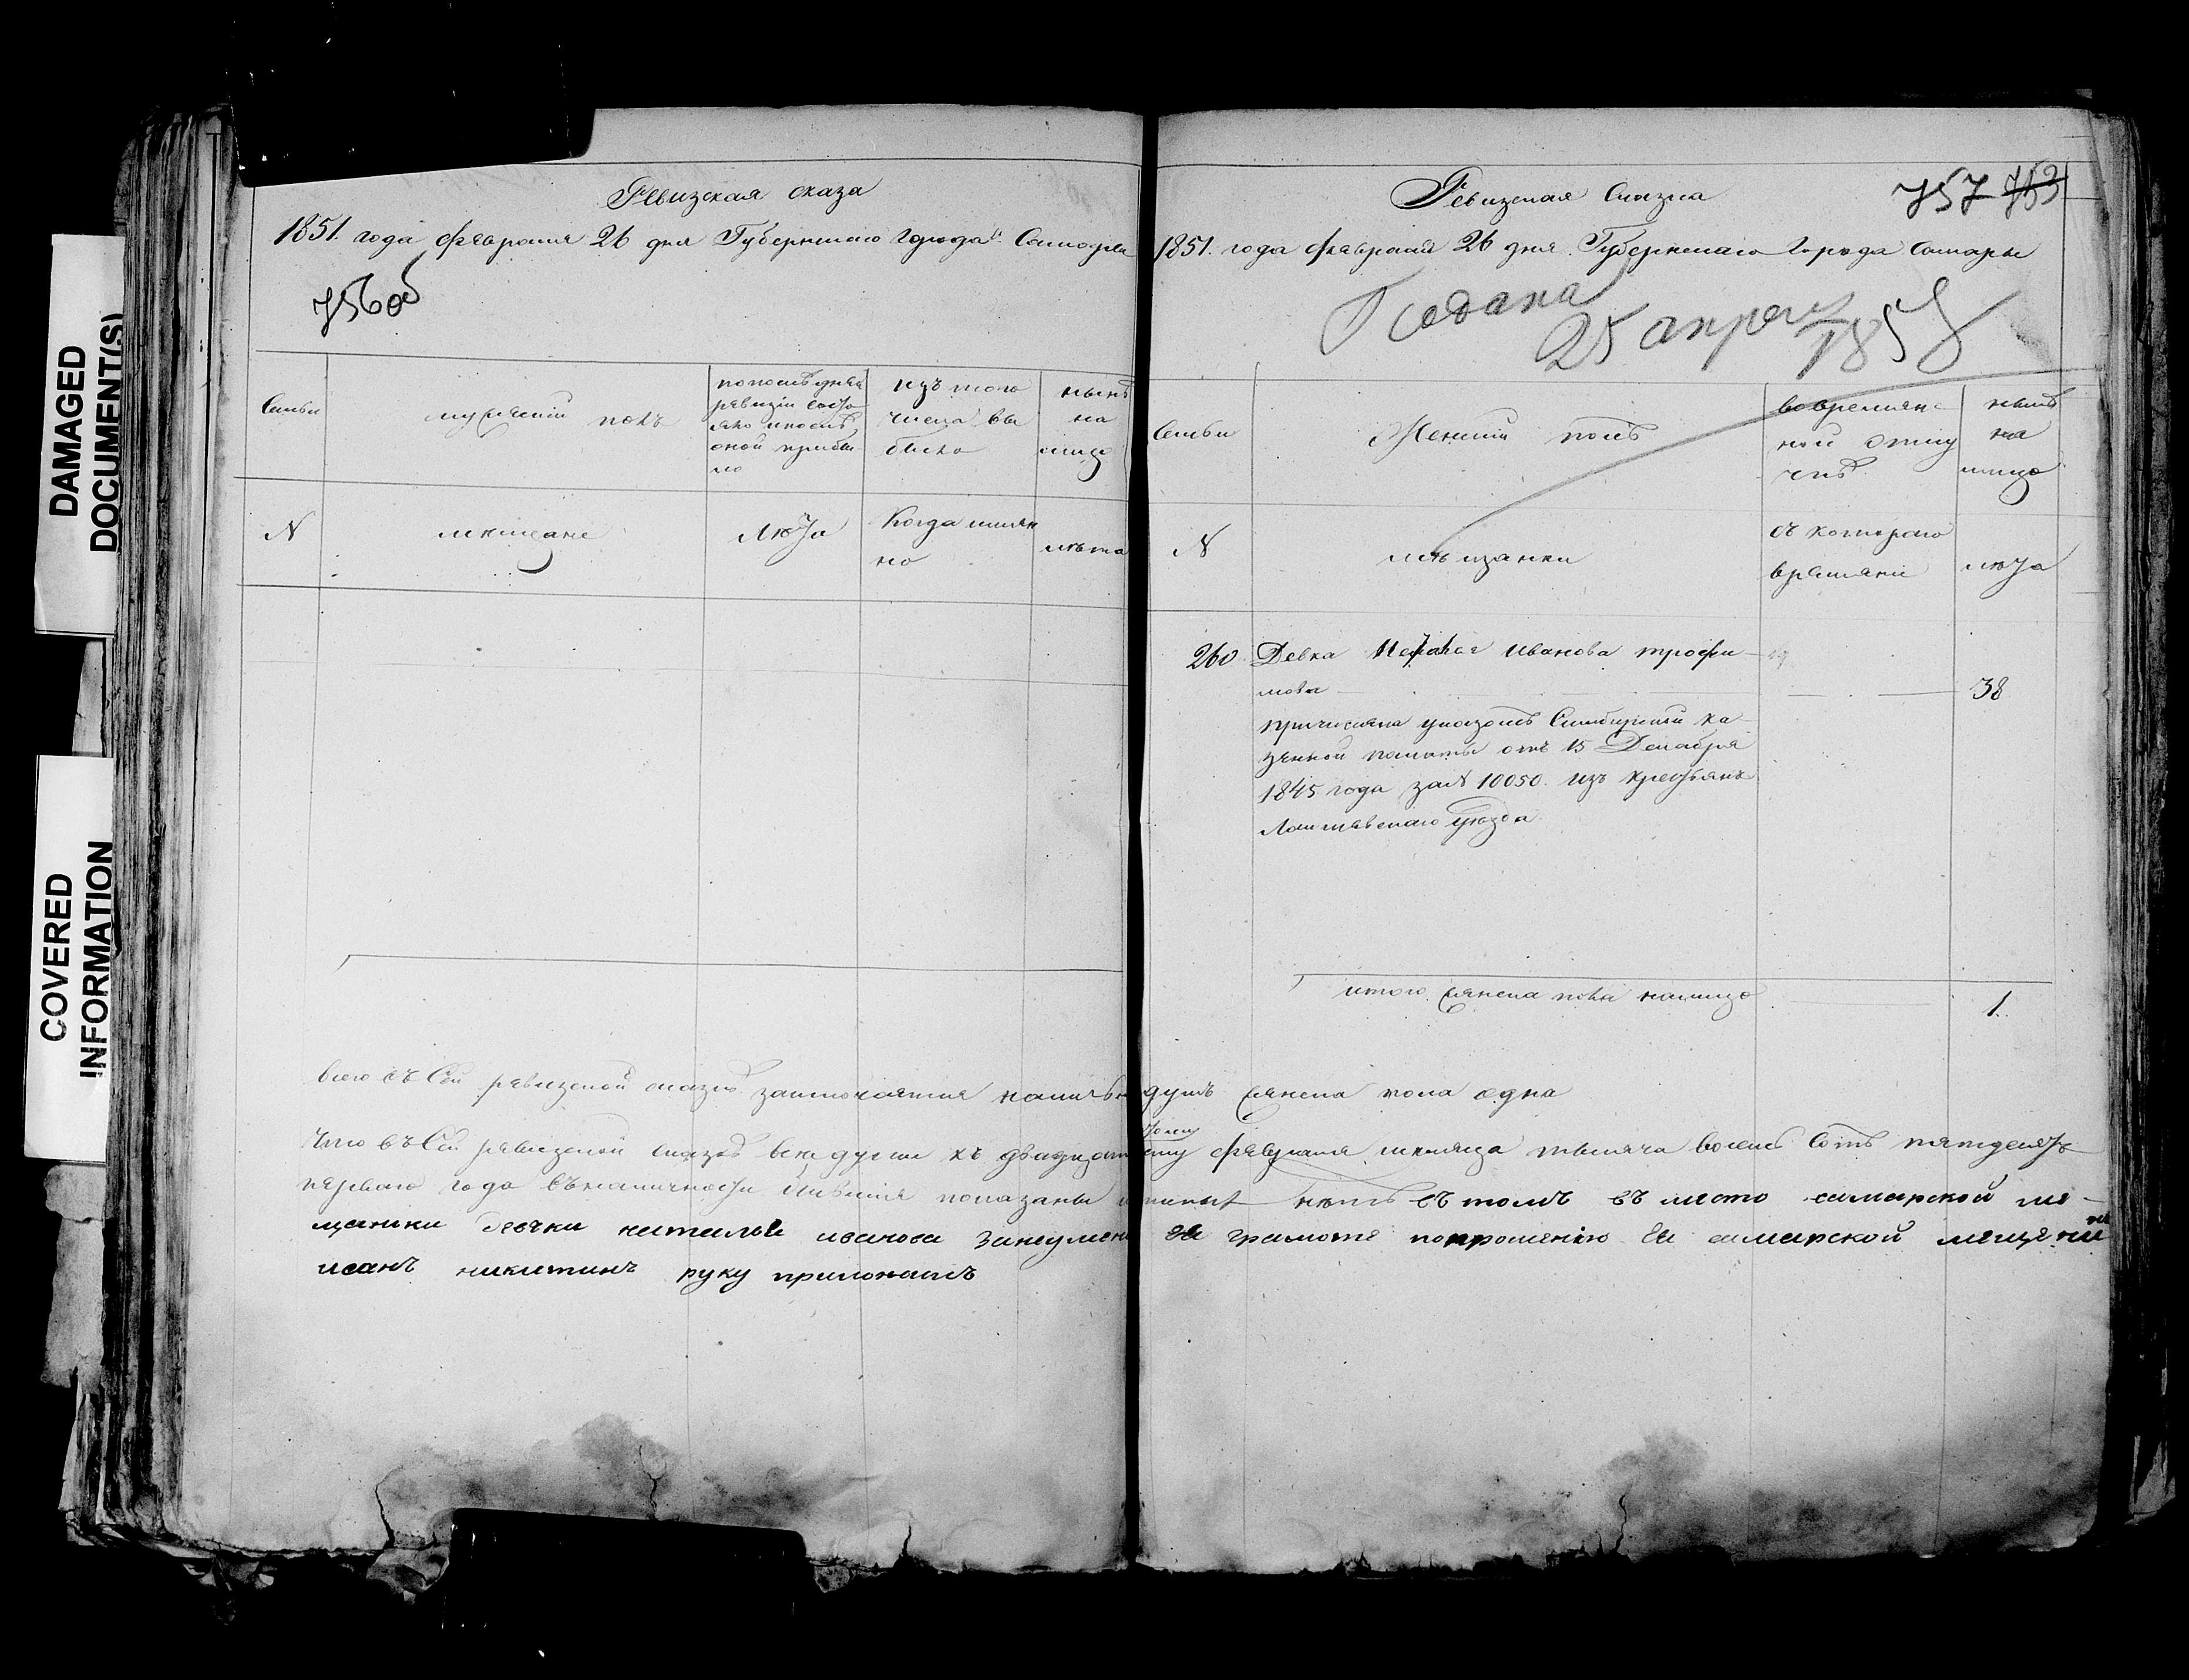 DAMAGED
DOCUMENT(S)
COVERED
INFORMATION
Ревизская сказа
1851. года февраля 26 дня Губернскаго Города Самары
756об
Семьи
мужескій полъ
изъ того
числа вы
было
нынѣ
на
лицо
N
мещане
лѣта
Когда имян
но
лѣта
Ревизская Сказка
757 753
1851. года февраля 26 дня Губернскаго Города Самары
Подана
25 апреля 1858
Семьи
Женскій полъ
во времян
ной отлу
чкѣ
нынѣ
на
лицо
N
мѣщанки
съ котораго
времяни
лѣта
260 Девка Иванова трофи
мова 38
причислена указомъ Симбирской ка
зенной палаты отъ 15 Декабря
1845 года за N 10050. изъ крестьянъ
уѣзда
итого женска пола налицо 1.
всего въ Сей ревизской сказкѣ заключается душъ женска пола одна
Что въ Сей ревизской сказкѣ все души къ февраля месяца тысяча восемь сотъ пятдесятъ
перваго года въ наличности показаны нѣтъ въ томъ въ место самарской ме
щанки девки натальи ивановой грамоте по прошению ея самарской мещенинъ
иванъ никитинъ руку приложилъ